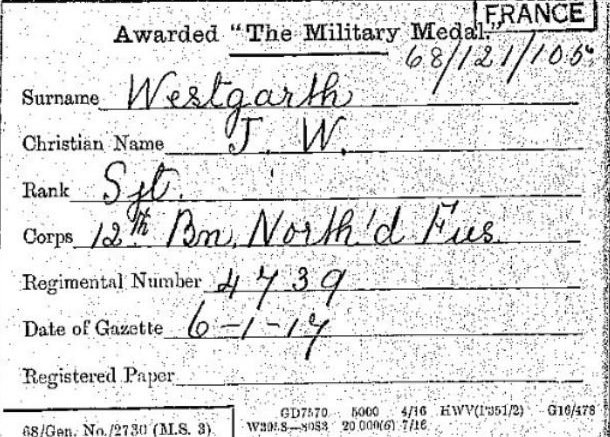 FRANCE
Awarded "The Military Medal."
68/121/105
Surname Westgarth
Christian Name J. W.
Rank Sjt.
Corps 12th Bn. North'd Fus.
Regimental Number 4739
Date of Gazette 6-1-17
Registered Paper
68/Gen. No./2730 (M.S. 3)
GD7570 5000 4/16 HWV(P351/2) G16/478
20 000(6) 7/16